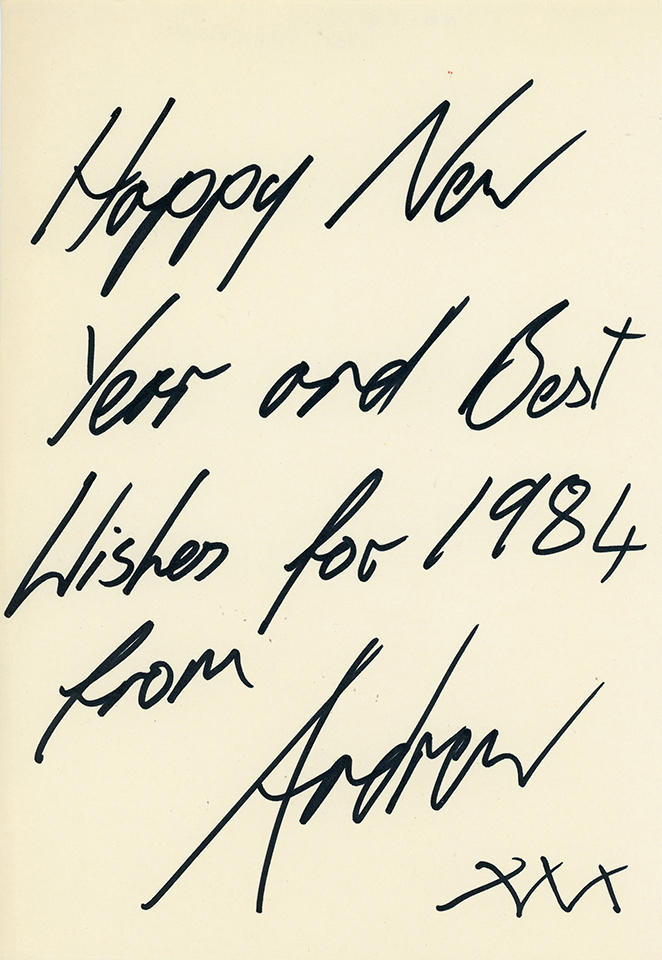 Happy New
Year and Best
Wishes for 1984
from
Andrew
xxx